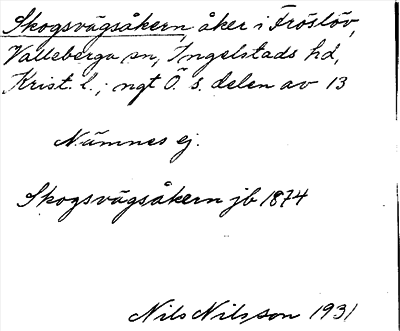 Skogsvägsåkern, åker i Fröslöv,
Valleberga sn, Ingelstads hd,
Krist. l.; ngt Ö. s. delen av 13
Nämnes ej.
Skogsvägsåkern jb 1874
Nils Nilsson 1931